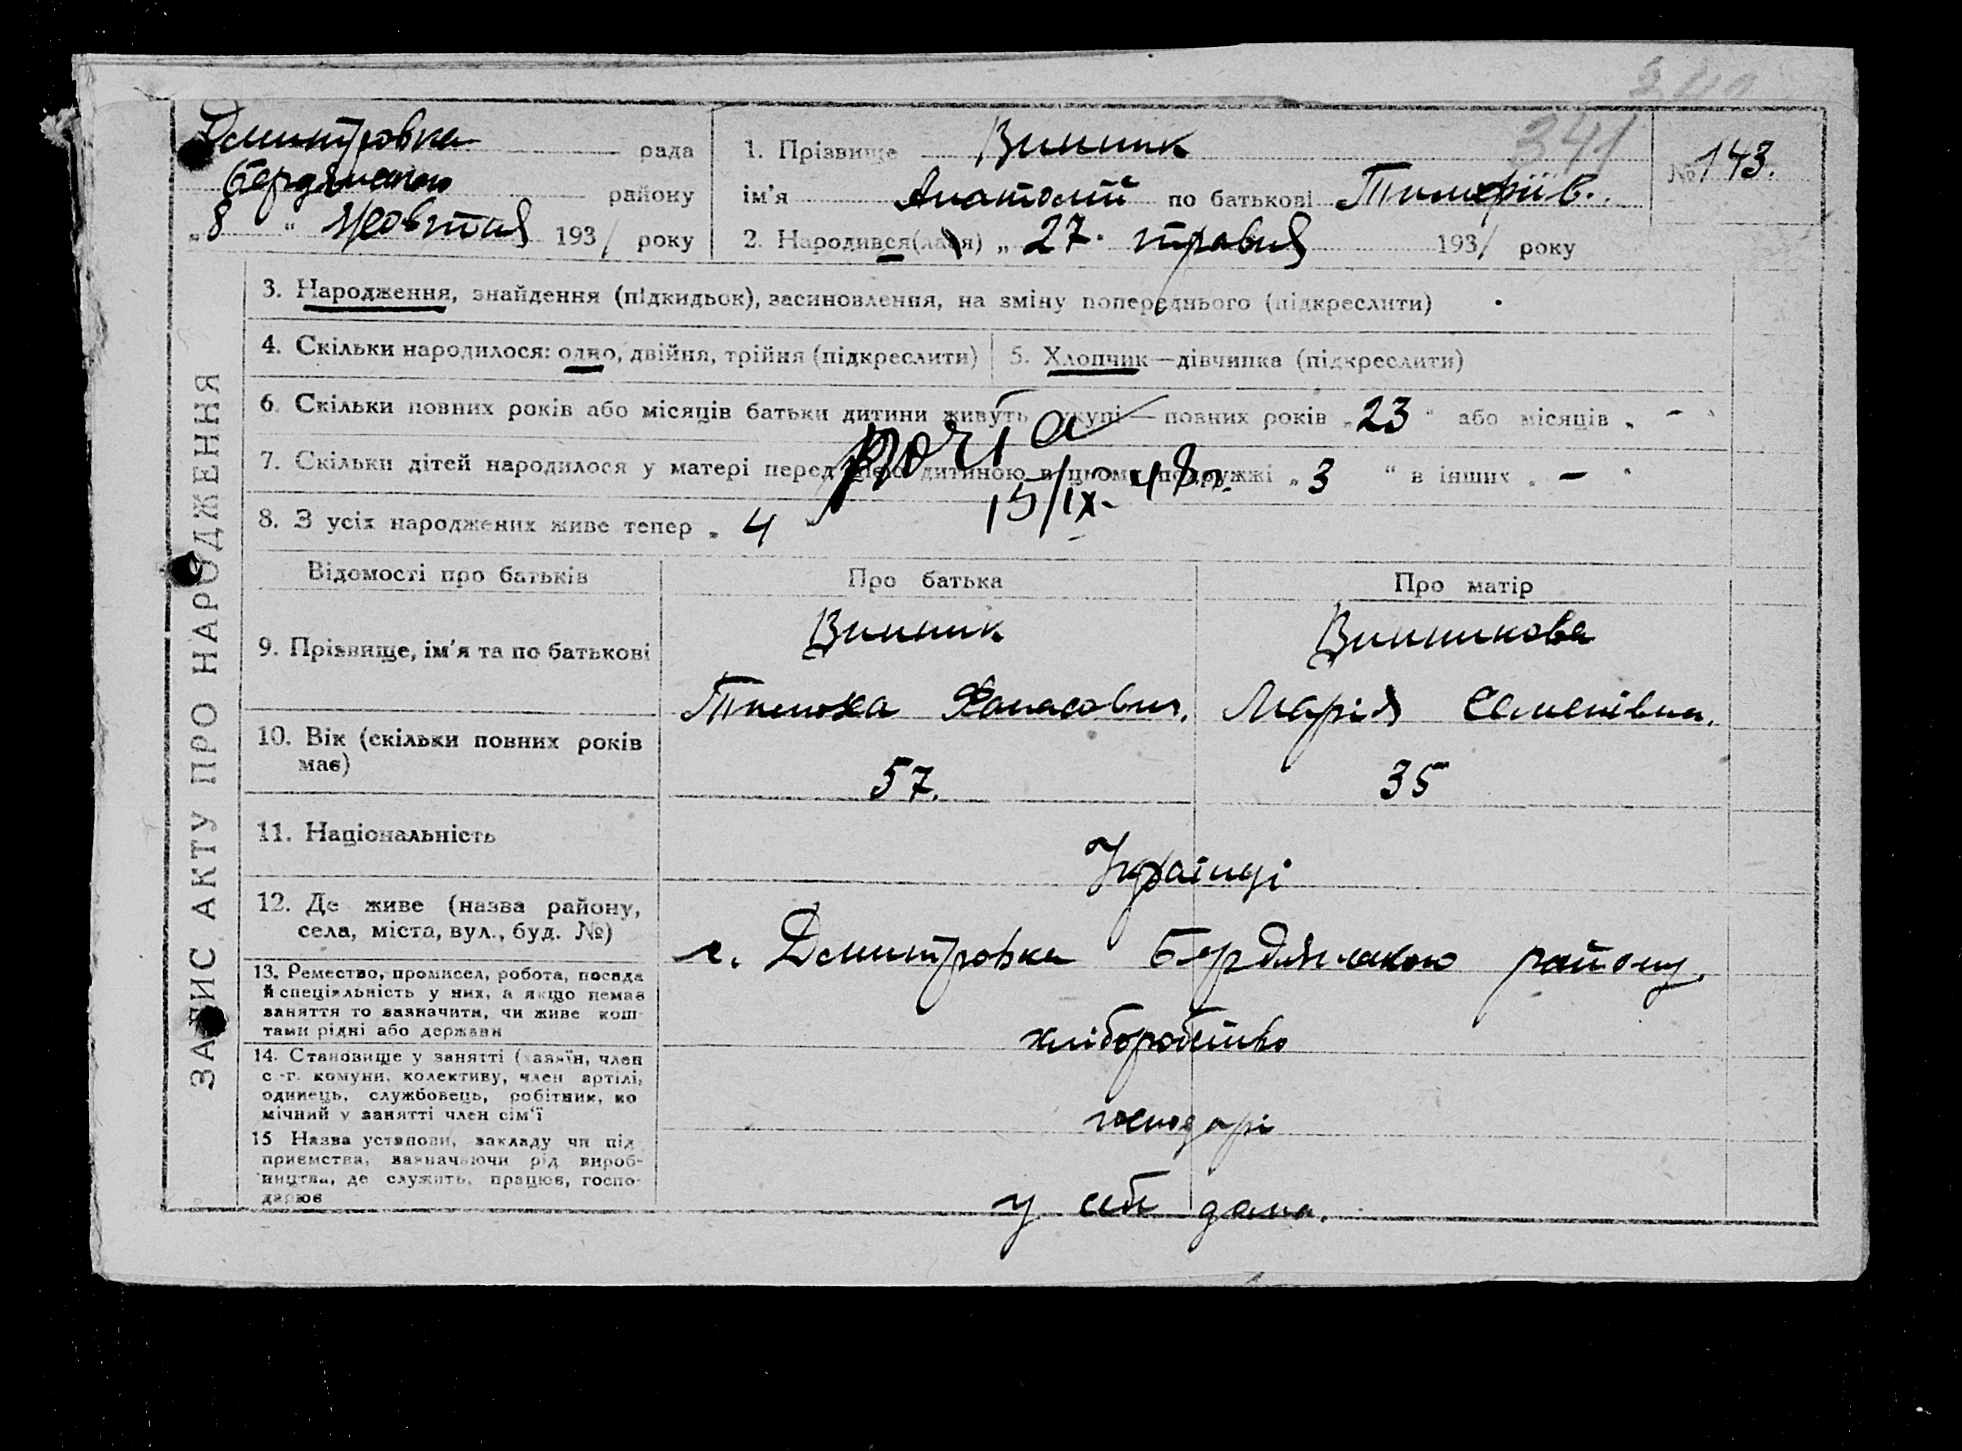 341
Дмитровка рада
Бердянського району
„ 8 “ жовтня 1931 року
1. Прізвище Винник
ім'я Анатолій по батькові Тимофіїв.
2. Народився(лася) „ 27. травня 1931 року
№ 143.
ЗАПИС АКТУ ПРО НАРОДЖЕННЯ
3. Народження, знайдення (підкидьок), засиновлення, на зміну попереднього (підкреслити)
4. Скільки народилося: одно, двійня, трійня (підкреслити)
5. Хлопчик—дівчинка (підкреслити)
6. Скільки повних років або місяців батьки дитини живуть укупі — повних років „ 23 “ або місяців „ - “
7. Скільки дітей народилося у матері перед цією дитиною в цьому подружжі „ 3 “ в інших „ - “
15/IX-48р.
8. З усіх народжених живе тепер „ 4 “
Відомості про батьків Про батька Про матір
9. Прізвище, ім'я та по батькові
Винник
Тимоха Опанасович.
Винникова
Марія Семенівна.
10. Вік (скільки повних років
має)
57. 35
11. Національність
Українці
12. Де живе (назва району,
села, міста, вул., буд. №)
с. Дмитровка Бердянського району.
13. Ремество, промисел, робота, посада
й спеціяльність у них, а якщо немає
заняття то зазначити, чи живе кош-
тами рідні або держави
хліборобство
14. Становище у занятті (хазяїн, член
с.-г. комуни, колективу, член артілі,
одинець, службовець, робітник, по
мічний у занятті член сім'ї
господарі
15 Назва установи, закладу чи під
приємства, зазначаючи рід вироб-
ництва, де служить, працює, госпо-
дарює
у себе дома.